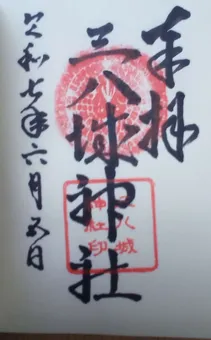 奉拝
三八城神社
令和七年六月五日
三八城
神社印